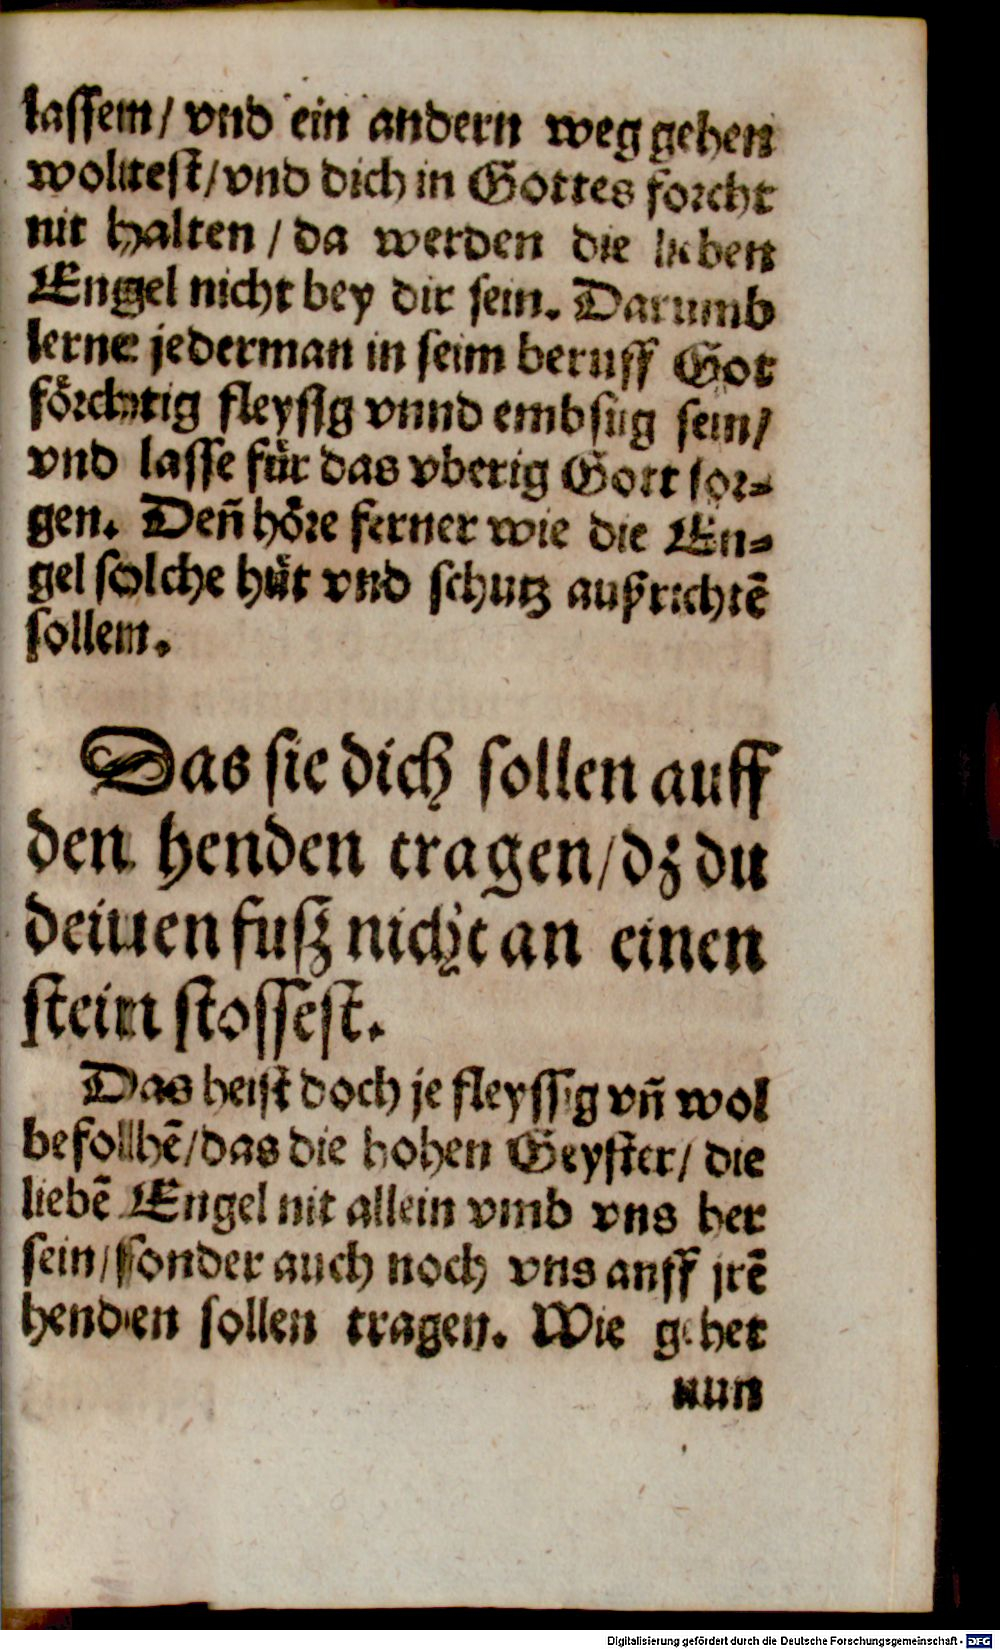 lassem / vnd ein andern weg gehen
woltest / vnd dich in Gottes forcht
nit halten / da werden die lieben
Engel nicht bey dir sein. Darumb
lerne jederman in seim beruff Got
förchtig fleysig vnnd embsig sein /
vnd lasse für das vberig Gott sor⸗
gen. Deñ höre ferner wie die En⸗
gel solche hüt vnd schutz außrichtẽ
sollem.
Das sie dich sollen auff
den henden tragen / dz du
deinen fusz nicht an einen
stein stossest.
Das heist doch je fleyssig vñ wol
befolhẽ / das die hohen Geyster / die
liebẽ Engel nit allein vmb vns her
sein / sonder auch noch vns auff jrẽ
henden sollen tragen. Wie gehet
nun
Digitalisierung gefördert durch die Deutsche Forschungsgemeinschaft - DFG